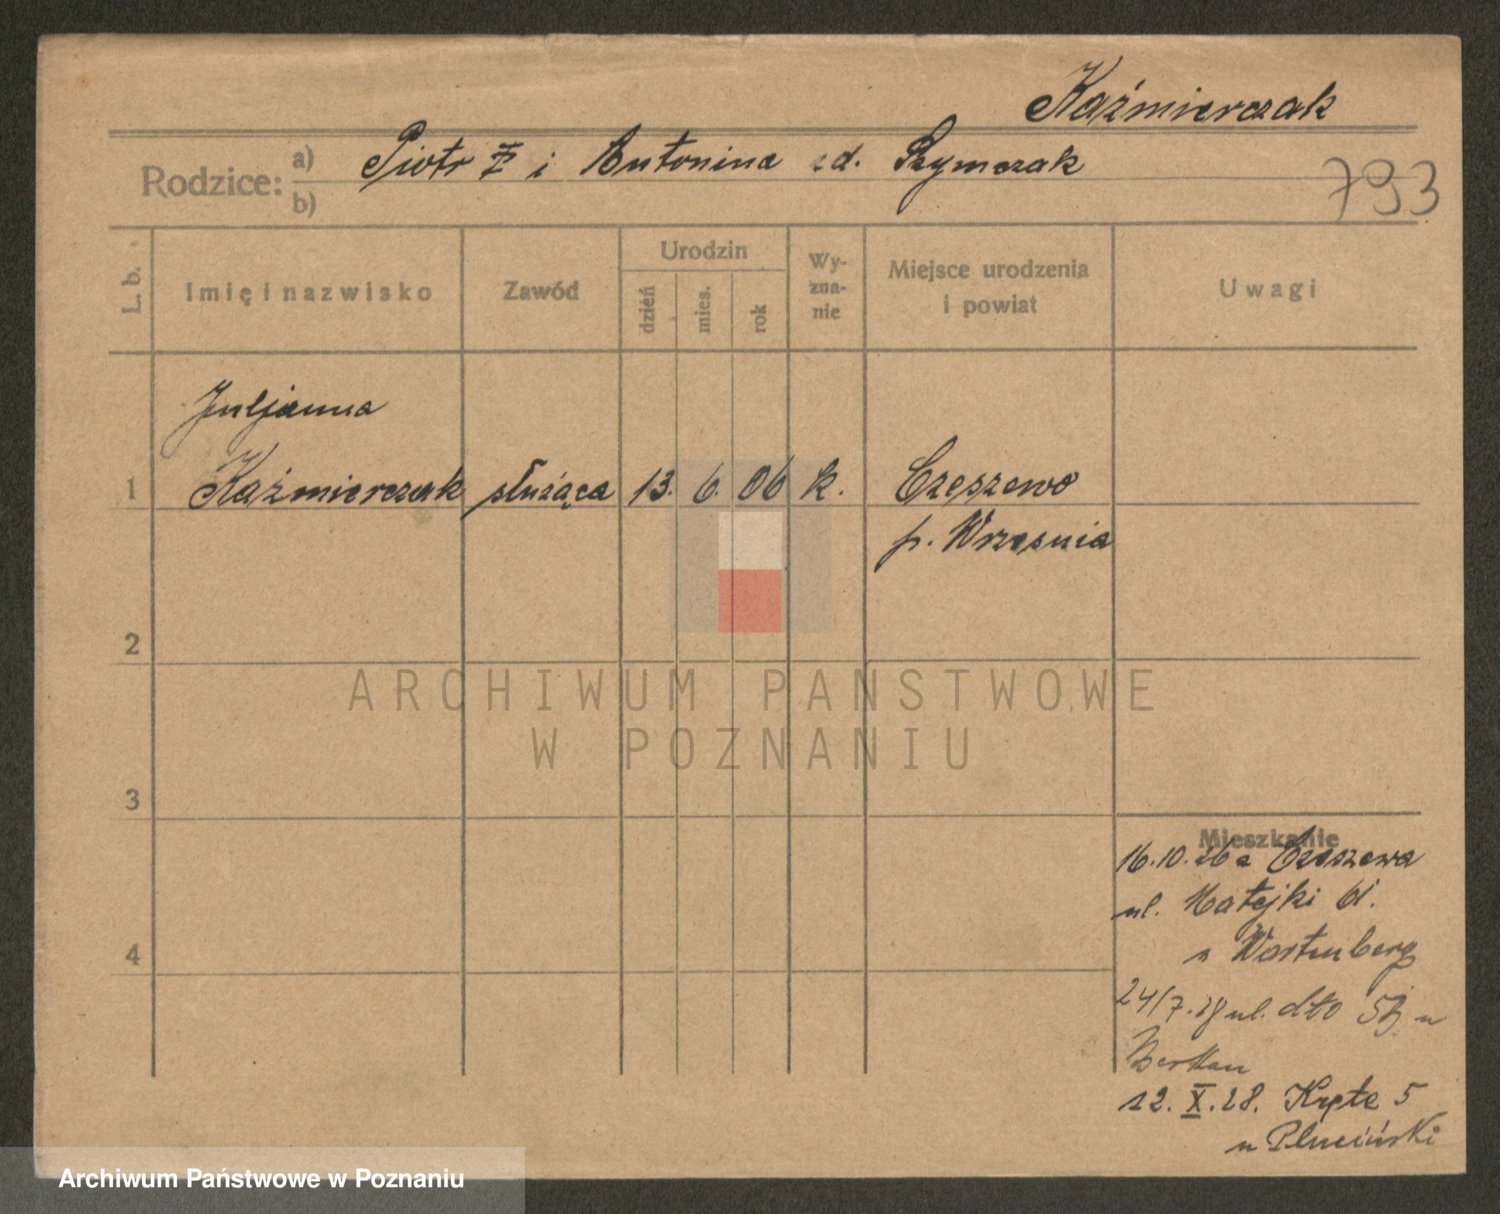 Kaźmierczak
Rodzice: a) Piotr i Antonina zd. Szymczak
b)
793
L. b.
Imię i nazwisko
Zawód
Urodzin
dzień
mies.
rok
Wy-
zna-
nie
Miejsce urodzenia
i powiat
Uwagi
Juljanna
1 Kaźmierczak służąca 13. 6. 06 k. Czeszewo
p. Wrzesnia
2
ARCHIWUM PAŃSTWOWE
W POZNANIU
3
Mieszkanie
16.10.26 z Czeszewa
ul. Matejki 61.
u Wartenberg
4
24/7.28 ul. dto 5 u
12. X. 28. Kręta 5
u Pluciński
Archiwum Państwowe w Poznaniu